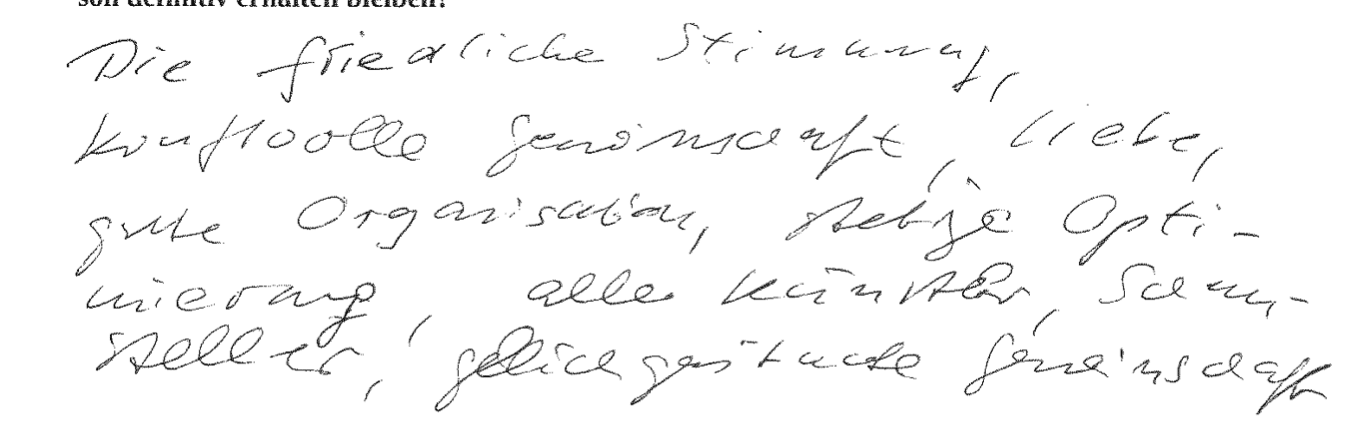 soll definitiv erhalten bleiben?
Die friedliche Stimmung,
kraftvolle Gemeinschaft, Liebe,
gute Organisation, stetige Opti-
mierung, alle Künstler, Schau-
steller, gleichgesinnte Gemeinschaft